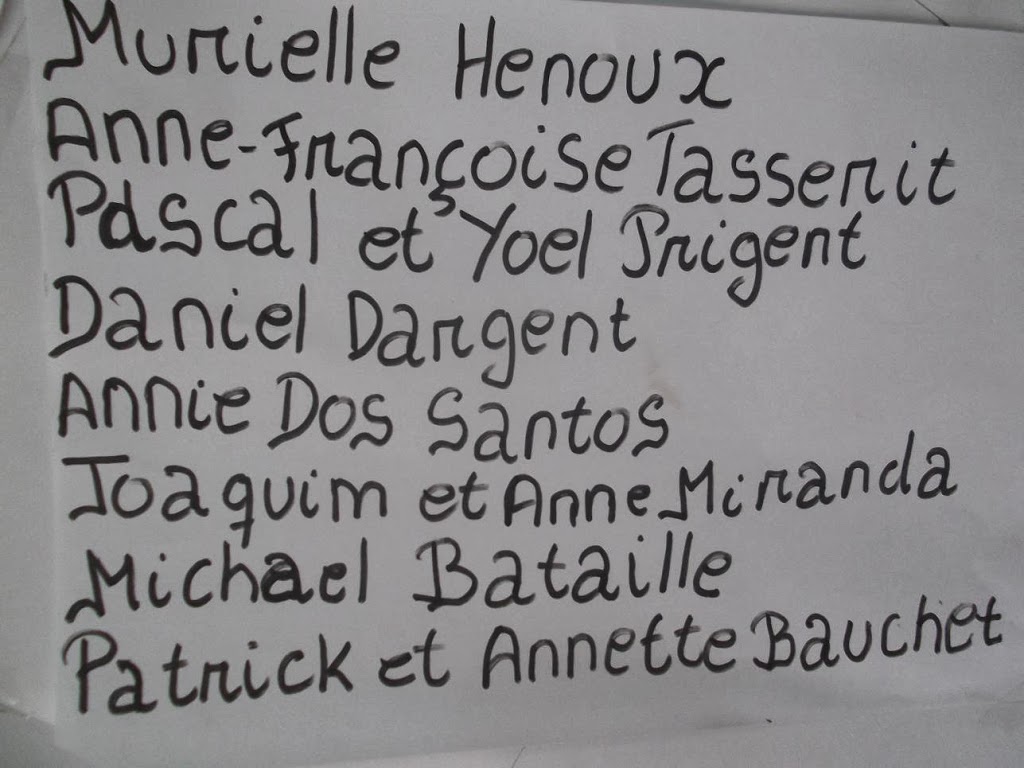 Murielle Henoux
Anne-Françoise Tasserit
Pascal et Yoel Prigent
Daniel Dargent
Annie Dos Santos
Joaquim et Anne Miranda
Michael Bataille
Patrick et Annette Bauchet